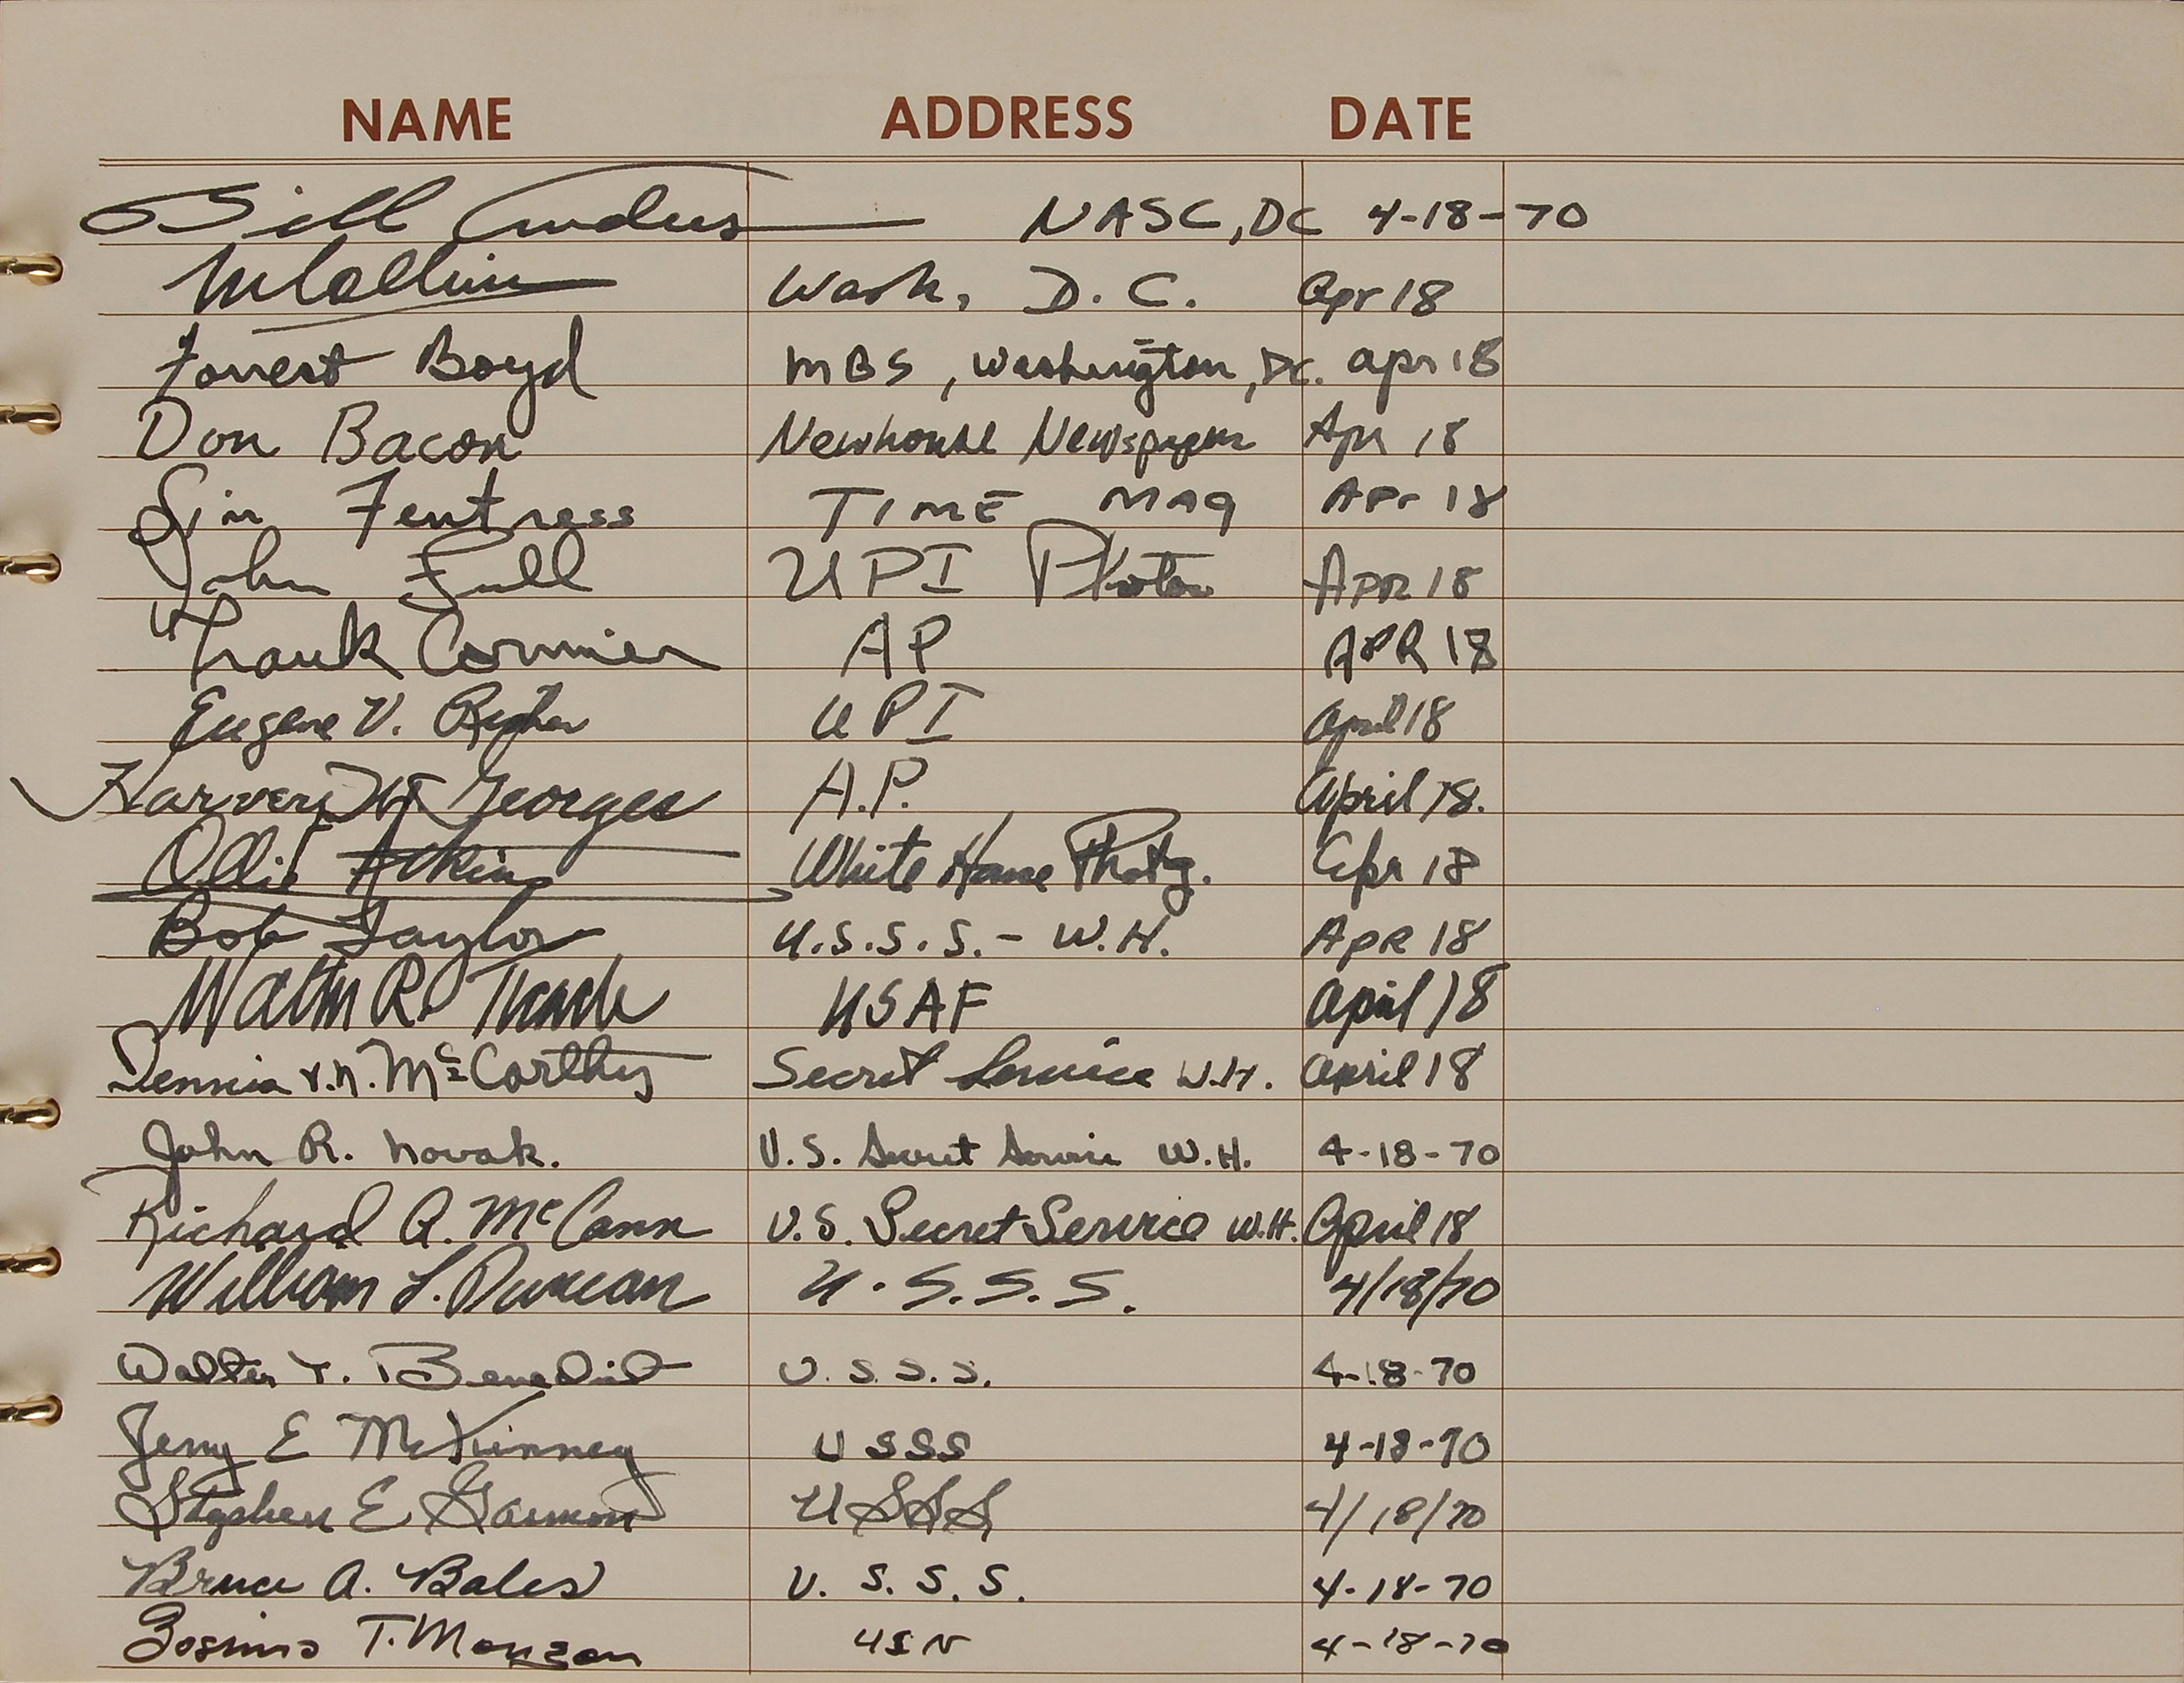 NAME ADDRESS DATE
Bill Anders NASC, DC 4-18-70
M Collins Wash, D.C. Apr 18
Forrest Boyd MBS, Washington, DC. Apr 18
Don Bacon Newhouse Newspapers Apr 18
Sim Fentress TIME MAG Apr 18
John Full UPI Photos APR 18
Frank Cormier AP APR 18
Eugene V. Risher UPI April 18
Harvey W Georges A.P. April 18.
Ollie Atkins White House Photog. Apr 18
Bob Taylor U.S.S.S. - W.H. APR 18
Walter R. USAF April 18
Dennis V.N. McCarthy Secret Service W.H. April 18
John R. Novak. U.S. Secret Service W.H. 4-18-70
Richard A. McCann U.S. Secret Service W.H. April 18
William L. Duncan U.S.S.S. 4/18/70
Walter T. Benedict U.S.S.S. 4-18-70
Jerry E McKinney USSS 4-18-70
Stephen E Garmon USSS 4/18/70
Bruce A. Bales U.S.S.S. 4-18-70
Zosimo T. Monzon USN 4-18-70